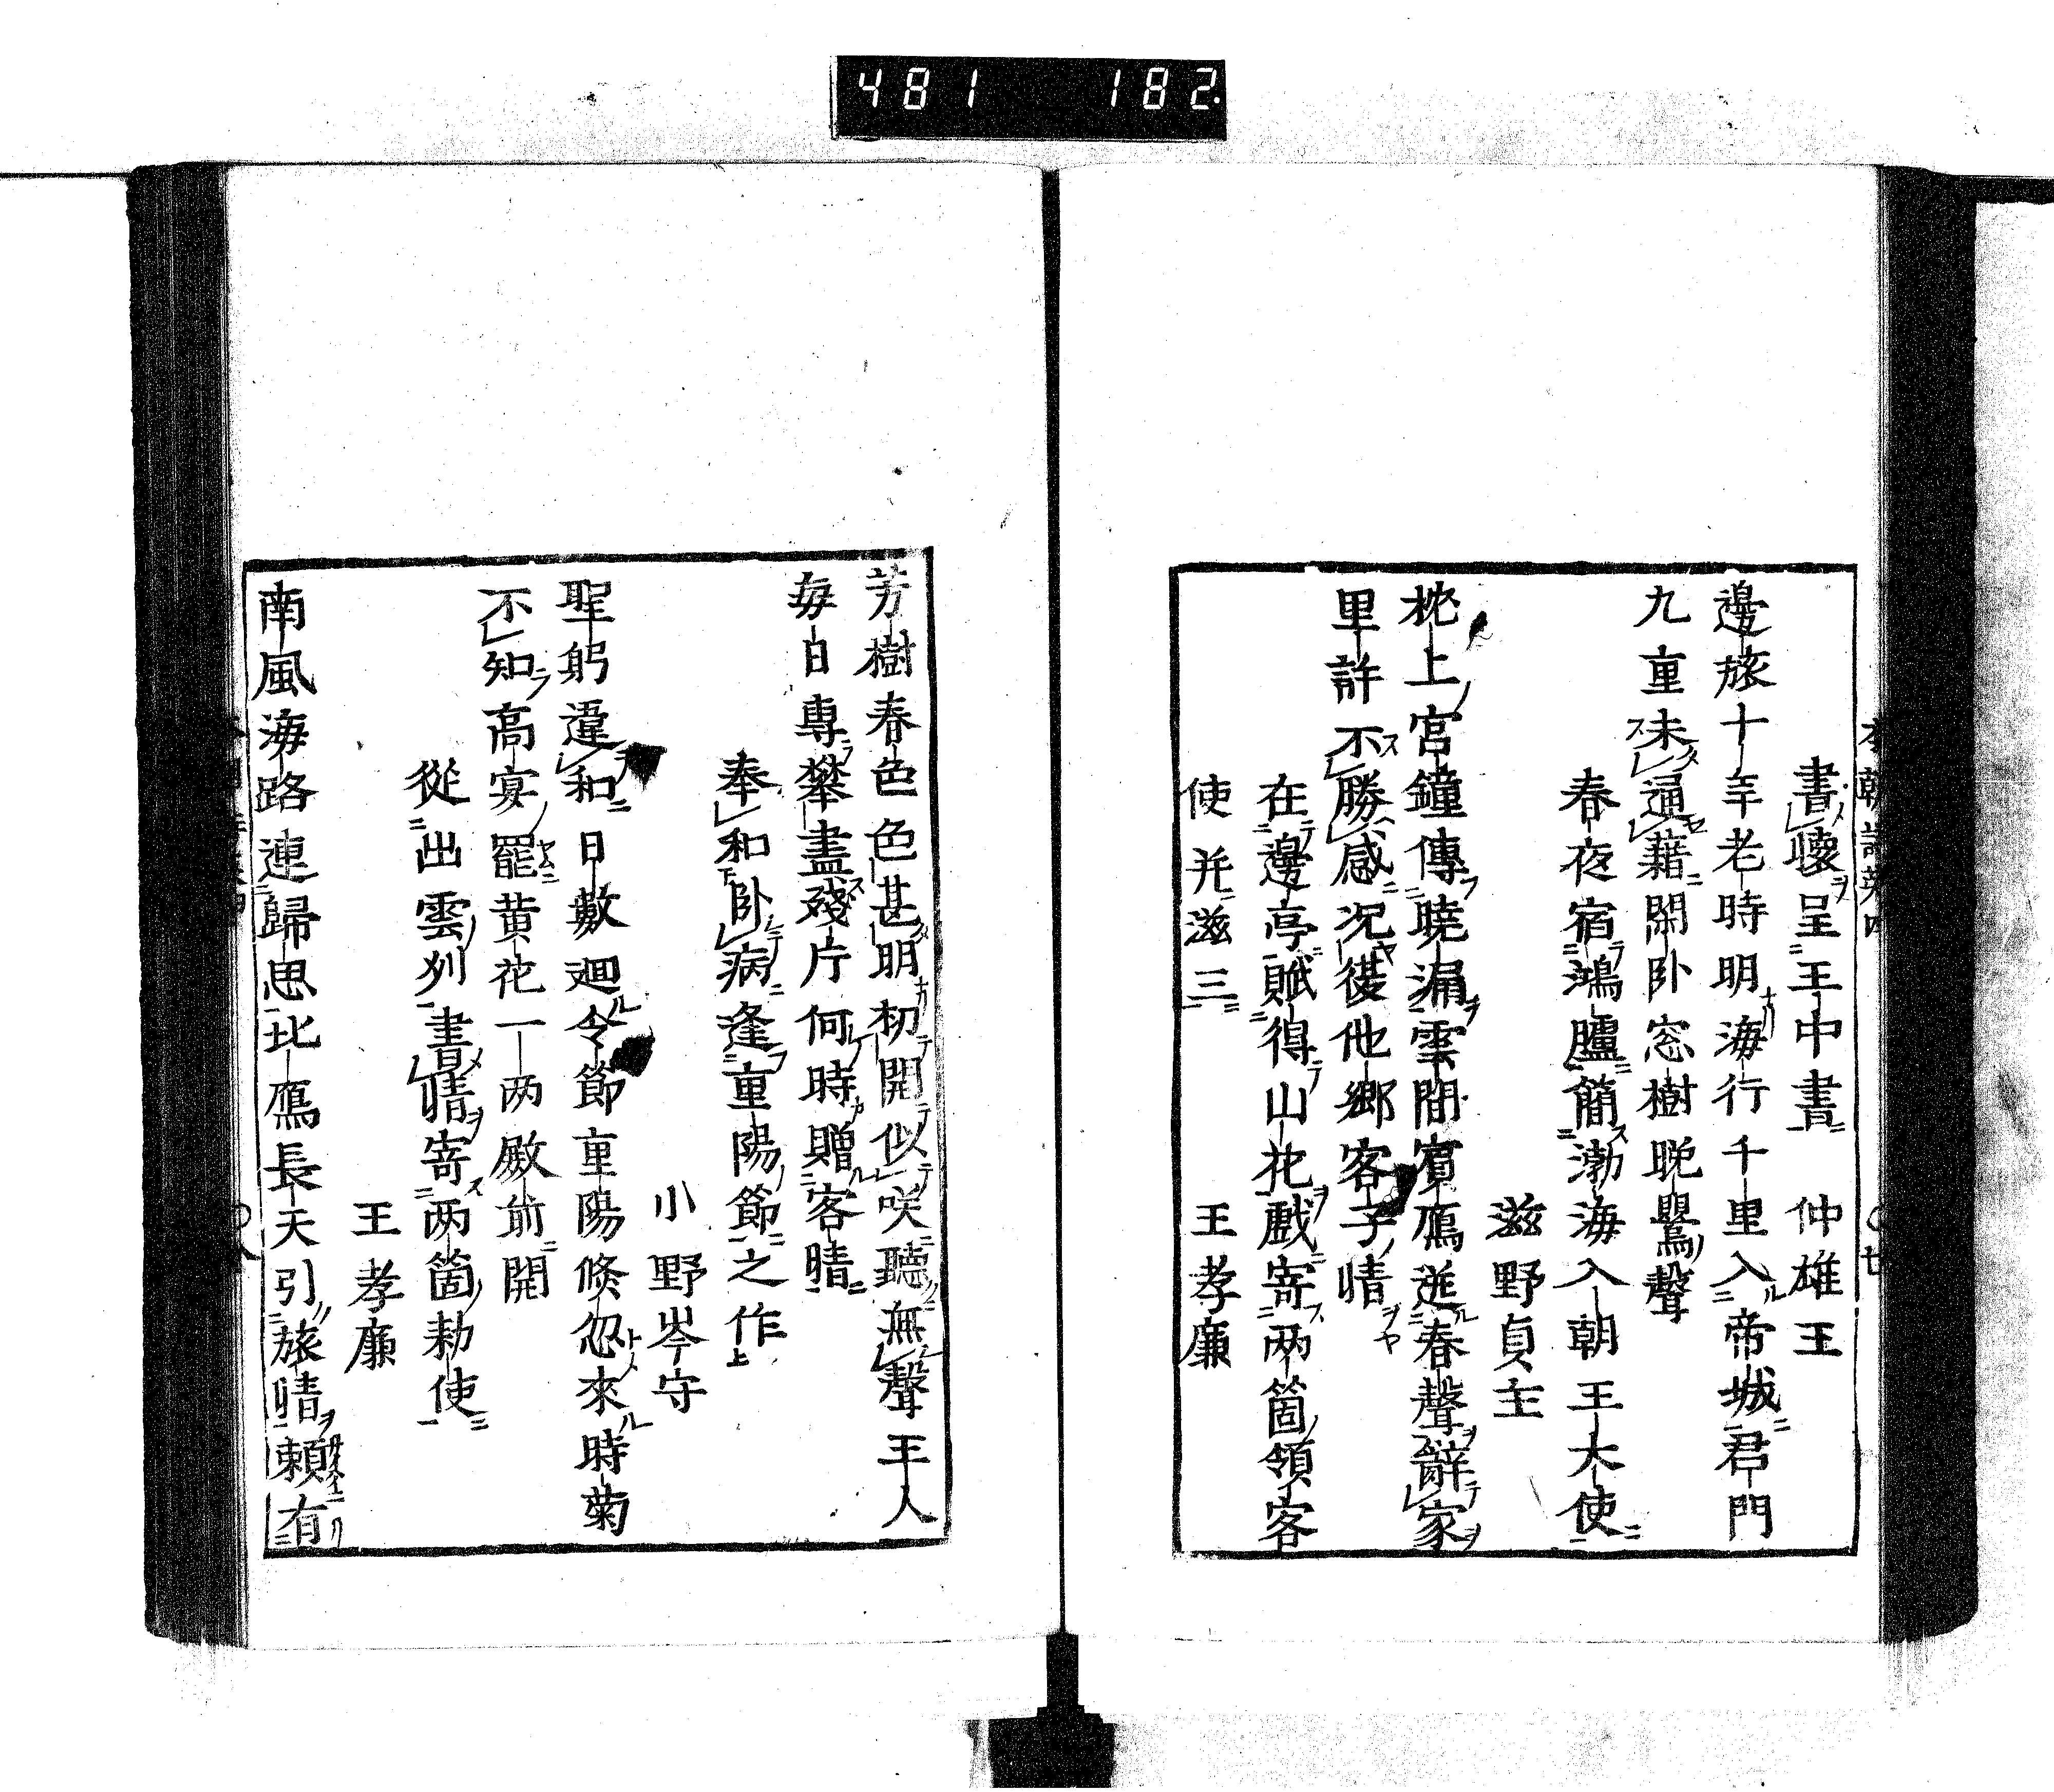 481 182
書懷呈王中書 仲雄王
邊旅十年老時明海行千里入帝城君門
九重未通藉閑卧窓樹晩鸎聲
春夜宿鴻臚簡渤海入朝王大使
滋野貞主
枕上宮鐘傳曉漏雲間賓鴈送春聲辭家
里許不勝感况復他郷客子情
在邊亭賦得山花戲寄两箇領客
使并滋三 王孝廉
芳樹春色色甚明初開似咲聽無聲主人
毎日專攀盡殘片何時贈客情
奉和卧病逢重陽節之作
小野岑守
聖躬違和日數廻令節重陽倐忽來時菊
不知高宴罷黄花一両殿前開
從出雲州書情寄两箇勅使
王孝廉
南風海路連歸思北鴈長天引旅情頼有